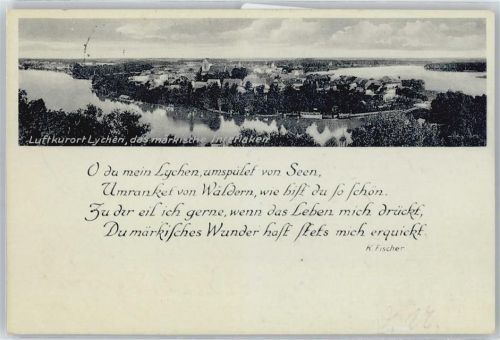 Luftkurort Lychen, das märkische Interlaken
O du mein Lychen, umspület von Seen,
Umranket von Wäldern, wie bist du so schön.
Zu dir eil ich gerne, wenn das Leben mich drückt,
Du märkisches Wunder hast stets mich erquickt.
K. Fischer